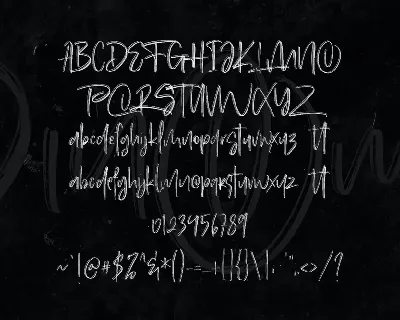 ABCDEFGHIJKLMNO
PQRSTUVWXYZ
abcdefghijklmnopqrstuvwxyz tt
abcdefghijklmnopqrstuvwxyz tt
0123456789
~`!@#$%^&*()-=–+[]{}\|;:'",.<>/?